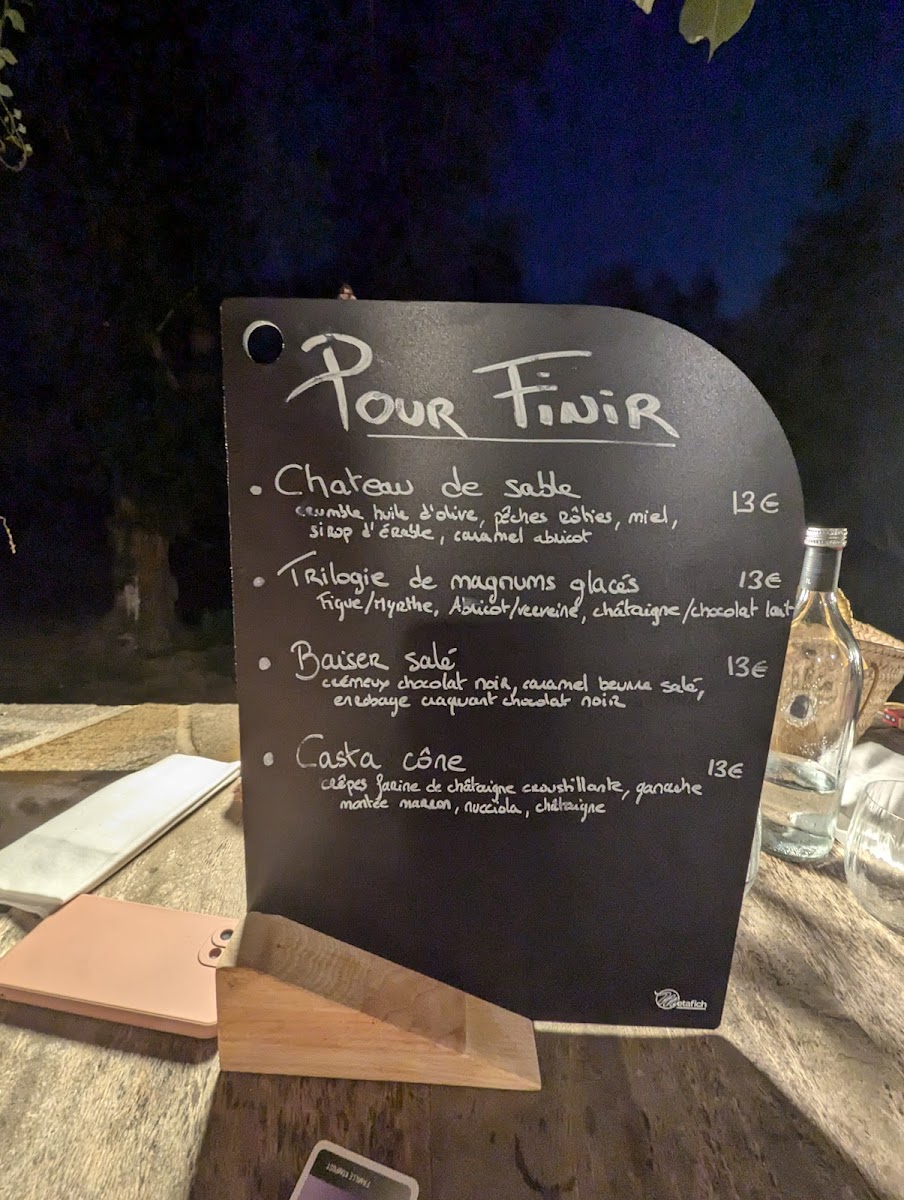 Pour Finir
• Chateau de sable 13€
crumble huile d'olive, pêches rôties, miel,
sirop d'érable, caramel abricot
• Trilogie de magnums glacés 13€
Figue/Myrthe, Abricot/verveine, châtaigne/chocolat lait
• Baiser salé 13€
crémeux chocolat noir, caramel beurre salé,
enrobage craquant chocolat noir
• Casta cône 13€
crêpes farine de châtaigne croustillante, ganache
montée marron, nucciola, châtaigne
etafich